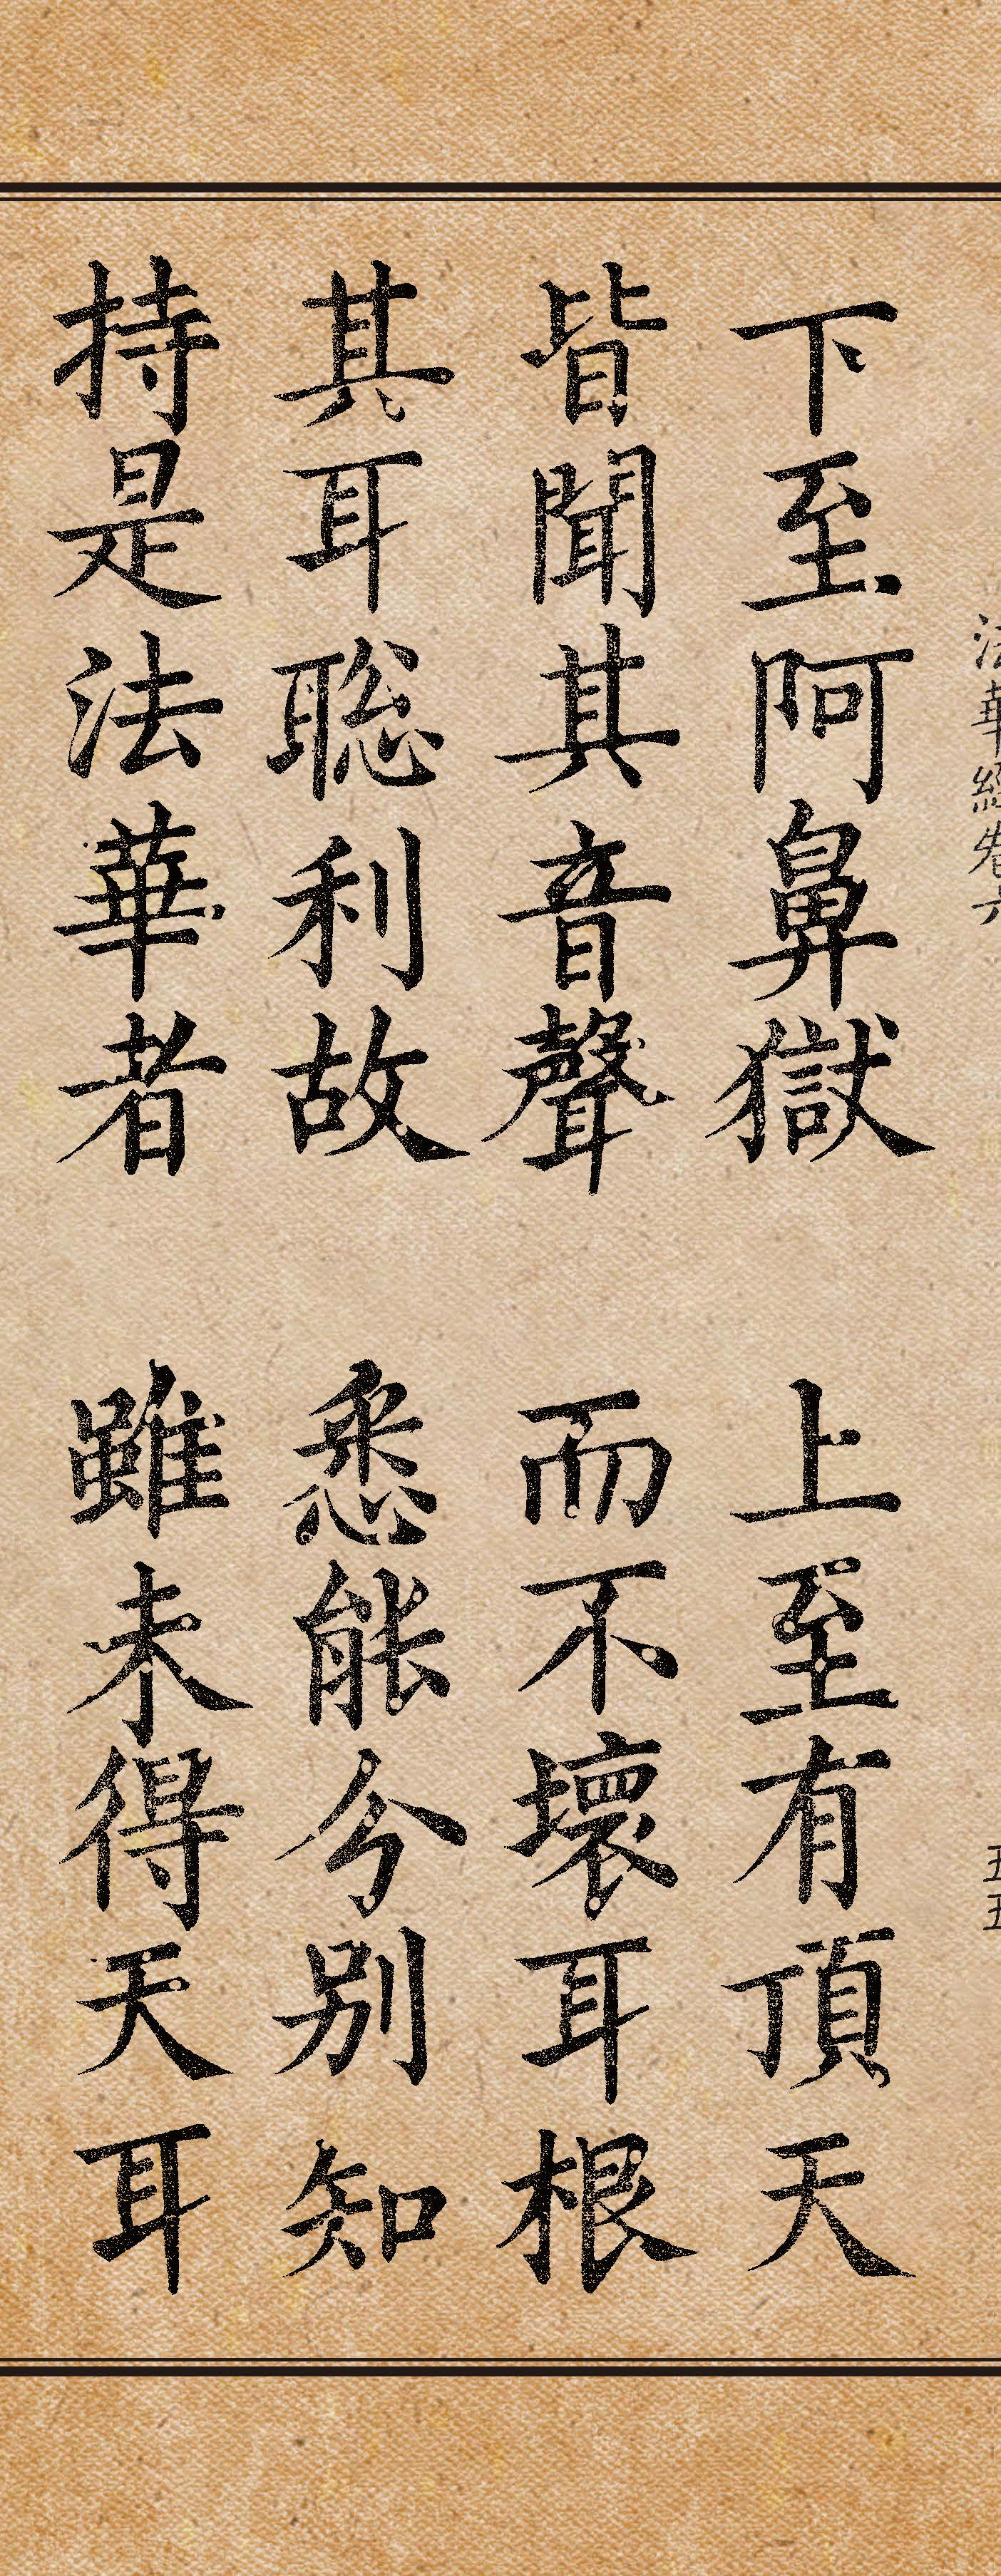 法華經卷六 五五
下至阿鼻獄 上至有頂天
皆聞其音聲 而不壞耳根
其耳聡利故 悉能分別知
持是法華者 雖未得天耳